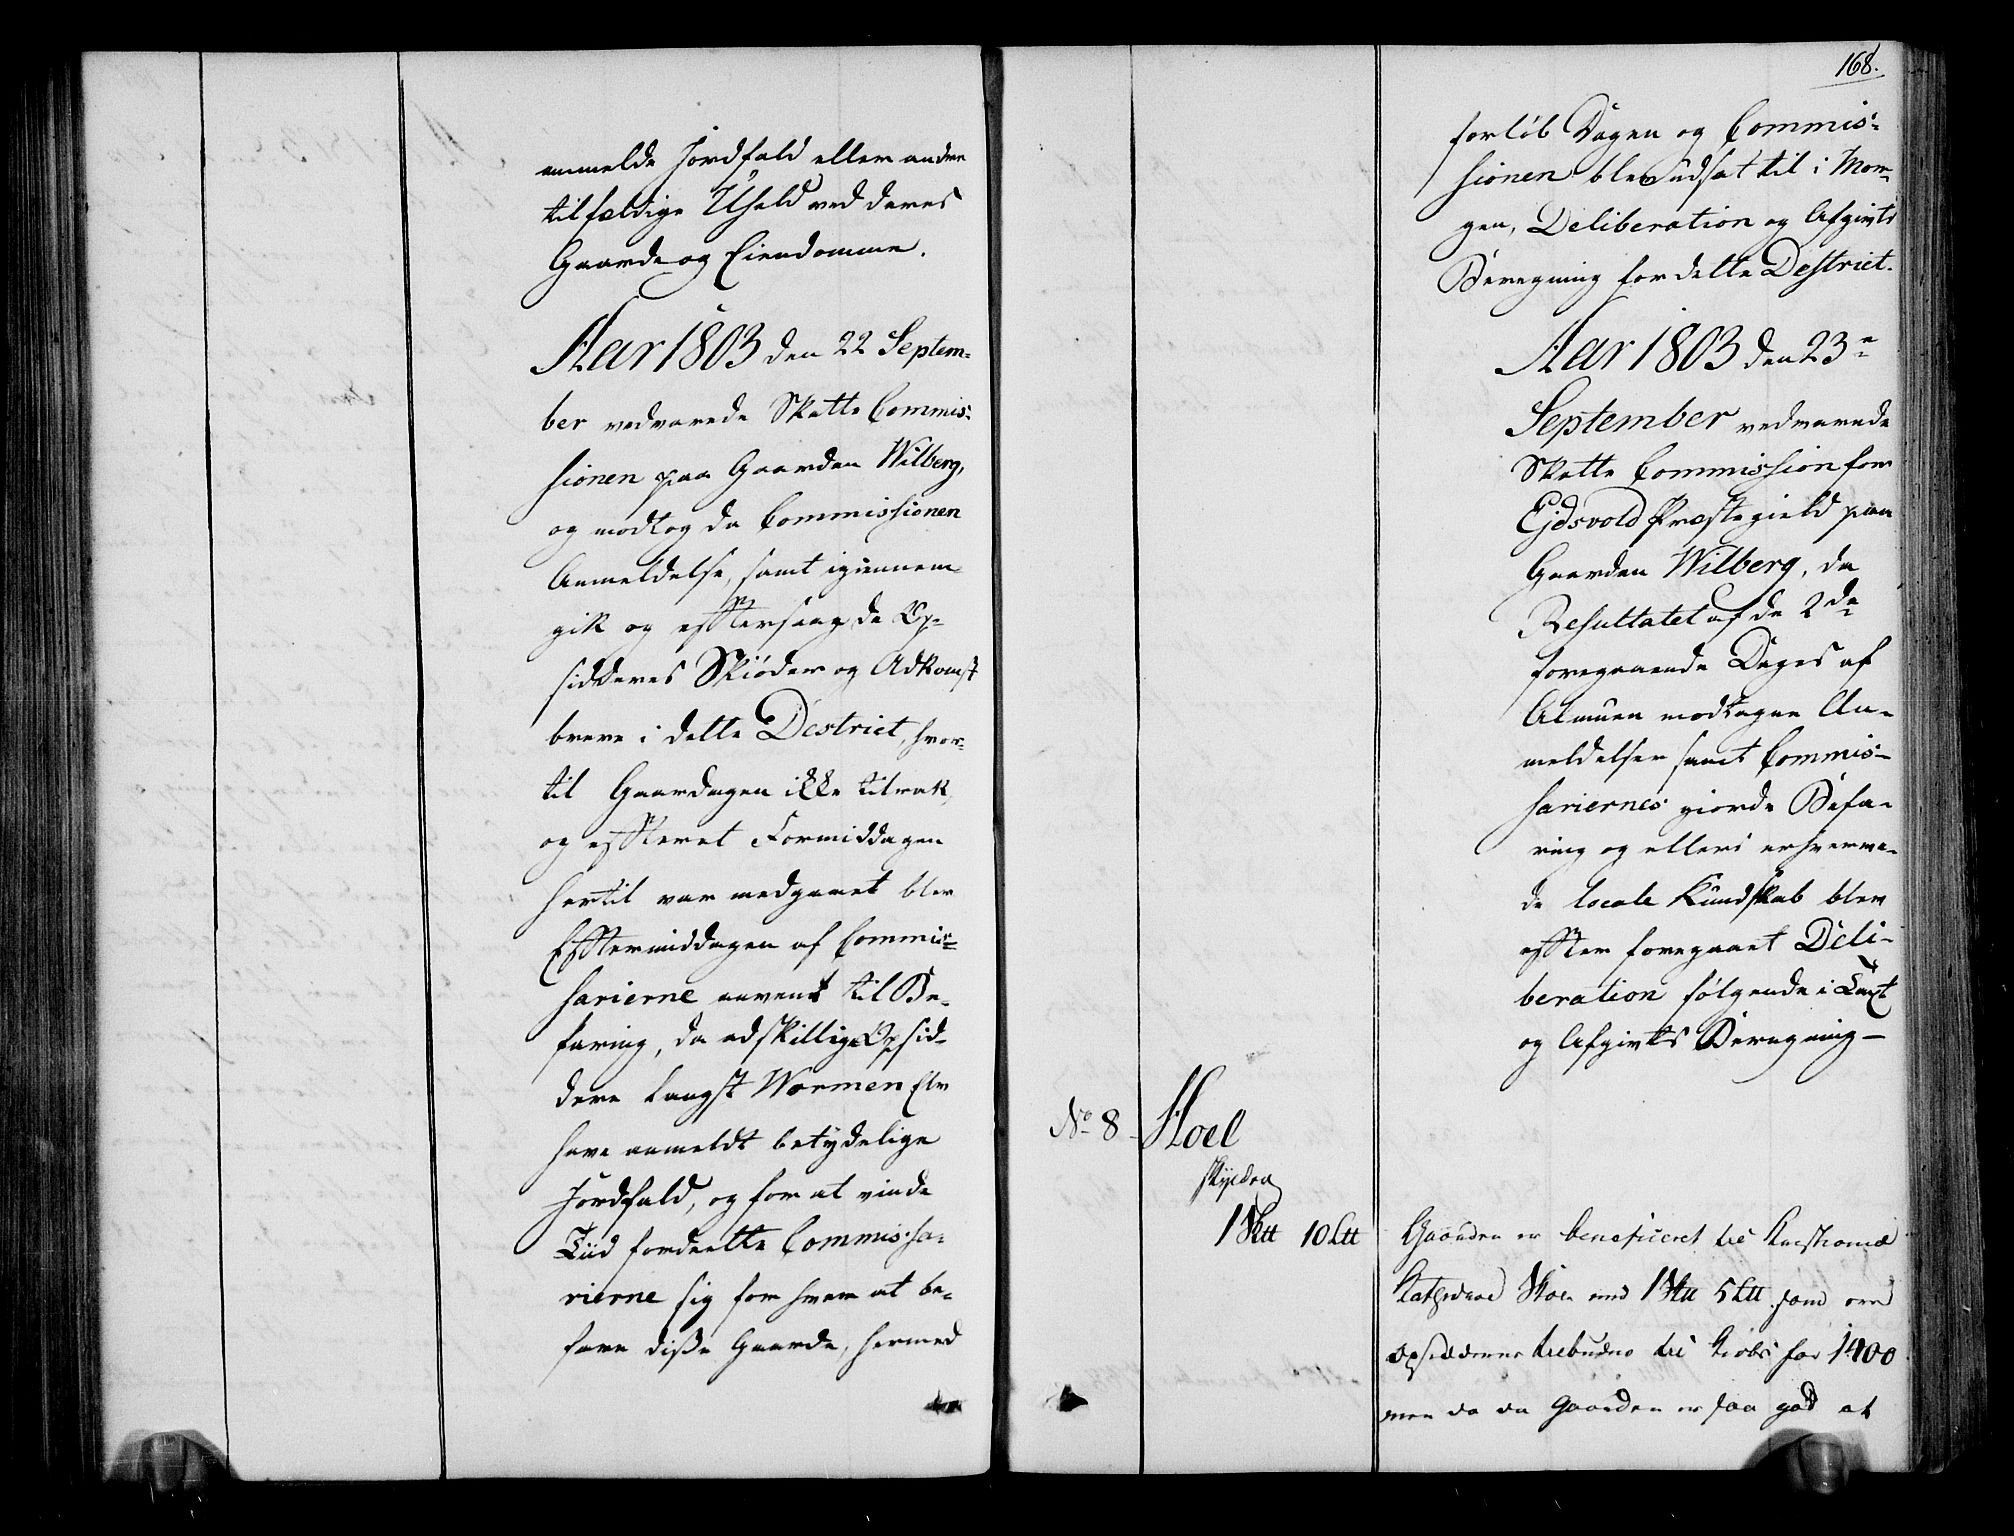 anmelde Jordfald eller andre
tilfældige Uheld ved deres
Gaarde og Eiendomme.
Aar 1803 den 22 Septem-
ber vedvarede Skatte Commis-
sionen paa Gaarden Wilberg,
og modtog da Commissionen
Anmeldelse, samt igiennem-
gik og efftersaag de Op-
sidderes Skiøder og Adkomst
breve i dette Destrict, hvor-
til Gaardagen ikke tilrak,
og effteret Formiddagen
hertil var medgaaet blev
Efftermiddagen af Commis-
sarierne anvendt til Be-
faring, da adskillige Opsid-
dere langst Wormen Elv
have anmeldt betydelige
Jordfald, og for at vinde
Tiid fordeelte Commissa-
rierne sig for hver at be-
fare diße Gaarde, hermed
168.
forløb Dagen og Commis-
sionen blev udsat til i Mor-
gen, Deliberation og Afgivts
Beregning for dette Destrict.
Aar 1803 den 23e
September vedvarede
Skatte Commission for
Ejdsvold Præstegield paa
Gaarden Wilberg, da
Resultatet af de 2de
foregaaende Dages af
Almuen modtagne An-
meldelser samt Commis-
sariernes giorde Befa-
ring og ellers erhverve-
de locale Kundskab blev
effter foregaaet Deli-
beration følgende i Taxt
og Afgivts Beregning-
No 8 Hoel
skylder
1 Sk℔ 10 L℔ Gaarden er beneficeret til
1 Sk℔ 5 L℔ som er
opsidderen tilbuden til Kiøbs for 1400
men da da Gaarden er saa god at